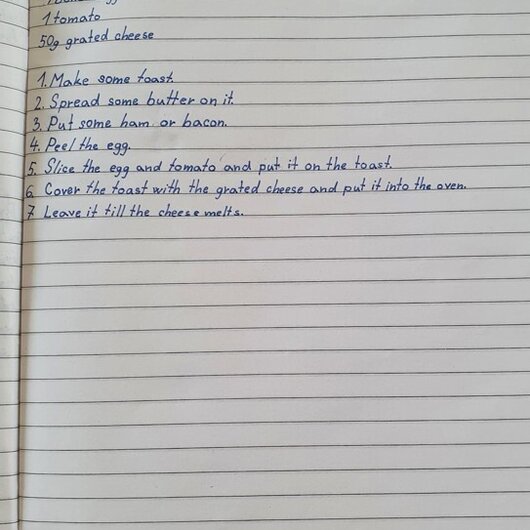 1 tomato
50g grated cheese
1. Make some toast.
2. Spread some butter on it.
3. Put some ham or bacon.
4. Peel the egg.
5. Slice the egg and tomato and put it on the toast.
6. Cover the toast with the grated cheese and put it into the oven.
7. Leave it till the cheese melts.